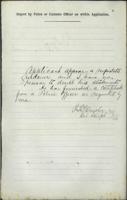 Report by Police or Customs Officer on within Application.
Applicant appears a respectable
resident and I have no
reason to doubt his statements.
He has furnished a certificate
from a Police Officer as required by